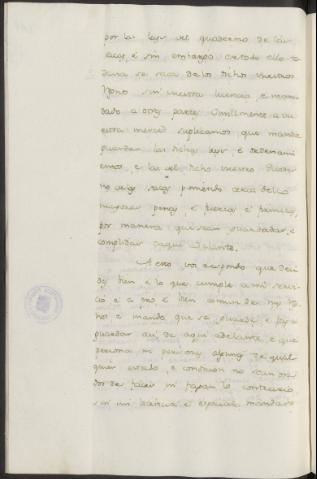 por las leyes del quaderno de las
sacas, e sin embargo de todo ello to
davia se saca de los dichos nuestros
Reyno sin nuestra licencia e man
dado a otras partes Umilmente a vu
estra merced suplicamos que mande
guardar las dichas leyes, e ordenami
entos, e las del dicho nuestro
no poniendo cerca dello
mayores penas, e fuerzas e firmezas,
por manera que sean guardadas, e
complidas de aqui adelante.
A esto vos respondo que decis
bien e lo que cumple a mi servi
cio e a pro e bien comun de mis Reg
nos e mando que se guarde e faga
guardar asi de aqui adelante, e que
persona ni personas algunas de qual
quier estado, e condicion no sean osa
dos de facer ni fagan lo contrario
sin mi licencia e especial mandado